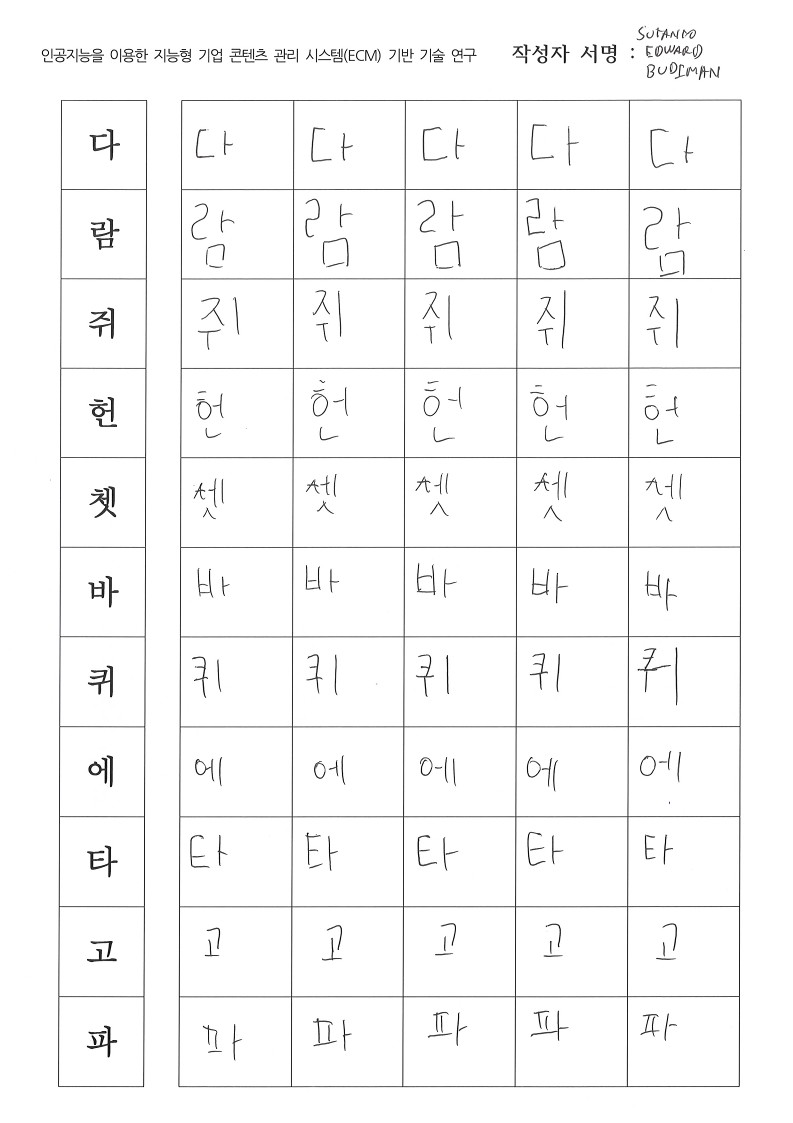 인공지능을 이용한 지능형 기업 콘텐츠 관리 시스템(ECM) 기반 기술 연구 작성자 서명 : SUTANTO
EDWARD
BUDIMAN
다 다 다 다 다 다
람 람 람 람 람 람
쥐 쥐 쥐 쥐 쥐 쥐
헌 헌 헌 헌 헌 헌
쳇 쳇 쳇 쳇 쳇 쳇
바 바 바 바 바 바
퀴 퀴 퀴 퀴 퀴 퀴
에 에 에 에 에 에
타 타 타 타 타 타
고 고 고 고 고 고
파 파 파 파 파 파